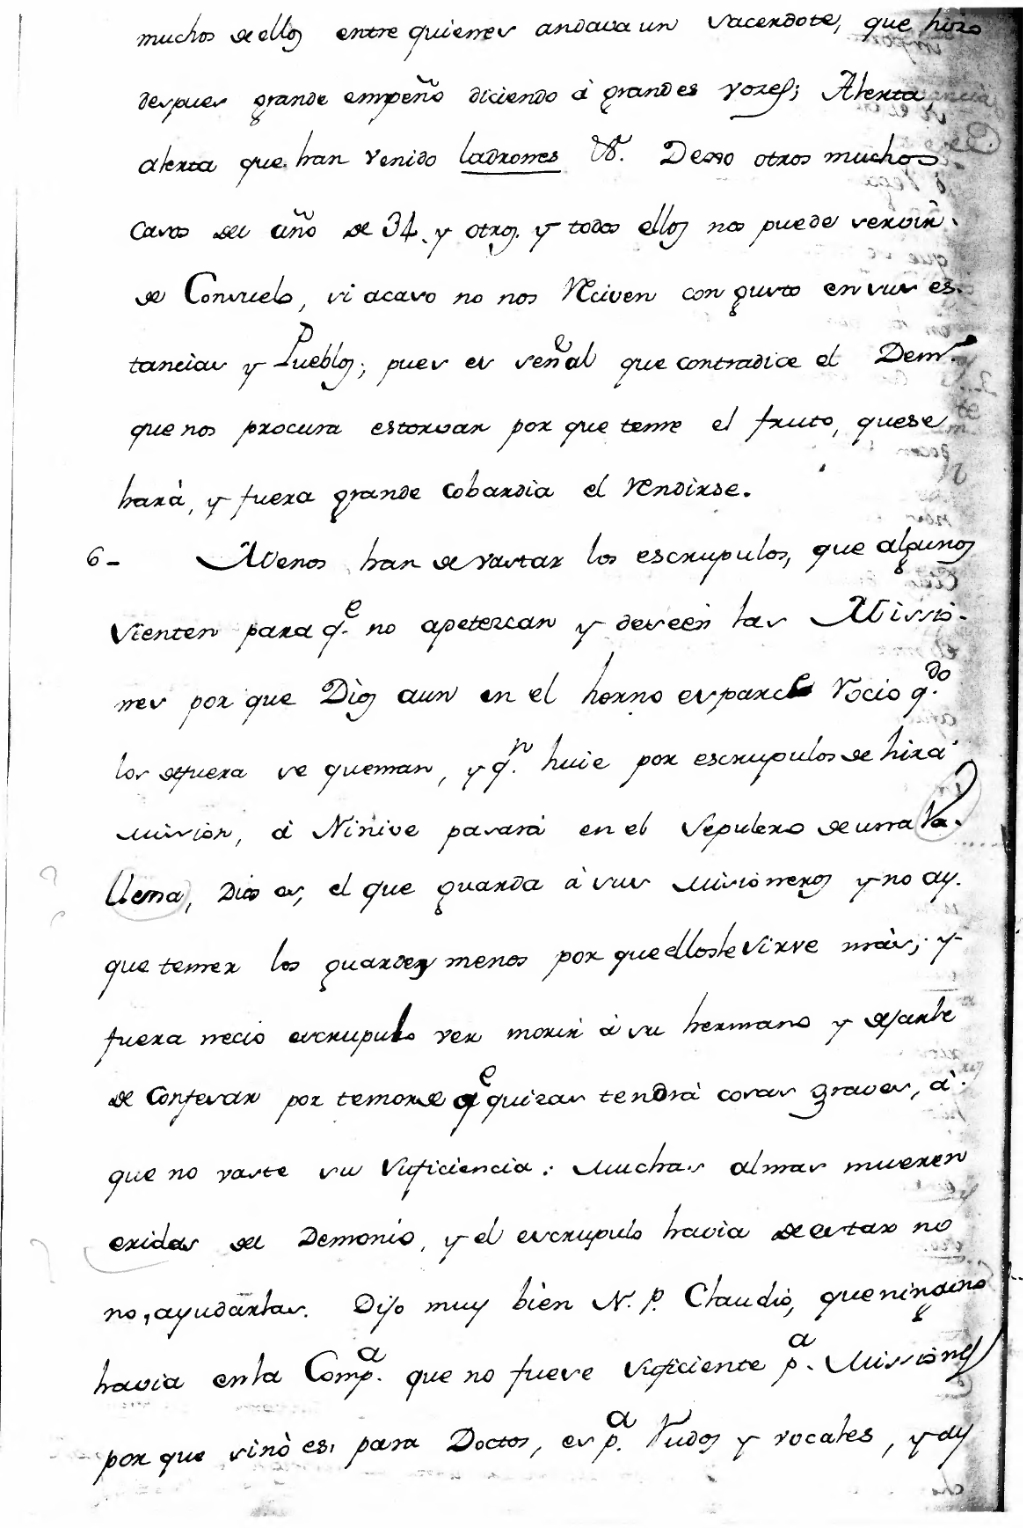 muchos de ellos entre quienes andava un sacerdote, que hizo
despues grande empeño diciendo á grandes vozes; Alerta,
alerta que han venido ladrones &. Dexo otros muchos
casos del año de 34. y otros. y todos ellos nos puede servir.
de Consuelo, si acaso no nos reciven con gusto en sus es-
tancias y Pueblos; pues es señal que contradice el Demo.
que nos procura estorvar por que teme el fruto, que se
hará, y fuera grande cobardia el rendirse.
6- Menos han de vastar los escrupulos, que algunos
sienten para q.e no apetezcan y deseen las Missio-
nes por que Dios aun en el horno esparce rocio q.do
los de fuera se queman, y q.n huie por escrupulos de hir á
mision, á Ninive parará en el sepulcro de una Va-
llena, Dios es, el que guarda á sus misioneros y no ay.
que temer los guarde menos por que ellos le sirve más; y
fuera necio escrupulo ver morir á su hermano y dejarle
de confesar por temor de q.e quizas tendrá cosas graves, á
que no vaste su suficiencia: muchas almas mueren
exidas del Demonio, y el escrupulo havia de estar no
no, ayudarlas. Dijo muy bien N. P. Claudio, que ninguno
havia en la Comp.a que no fuese suficiente p.a Missiones
por que sinò es, para Doctos, es p.a rudos y vocales, y ay